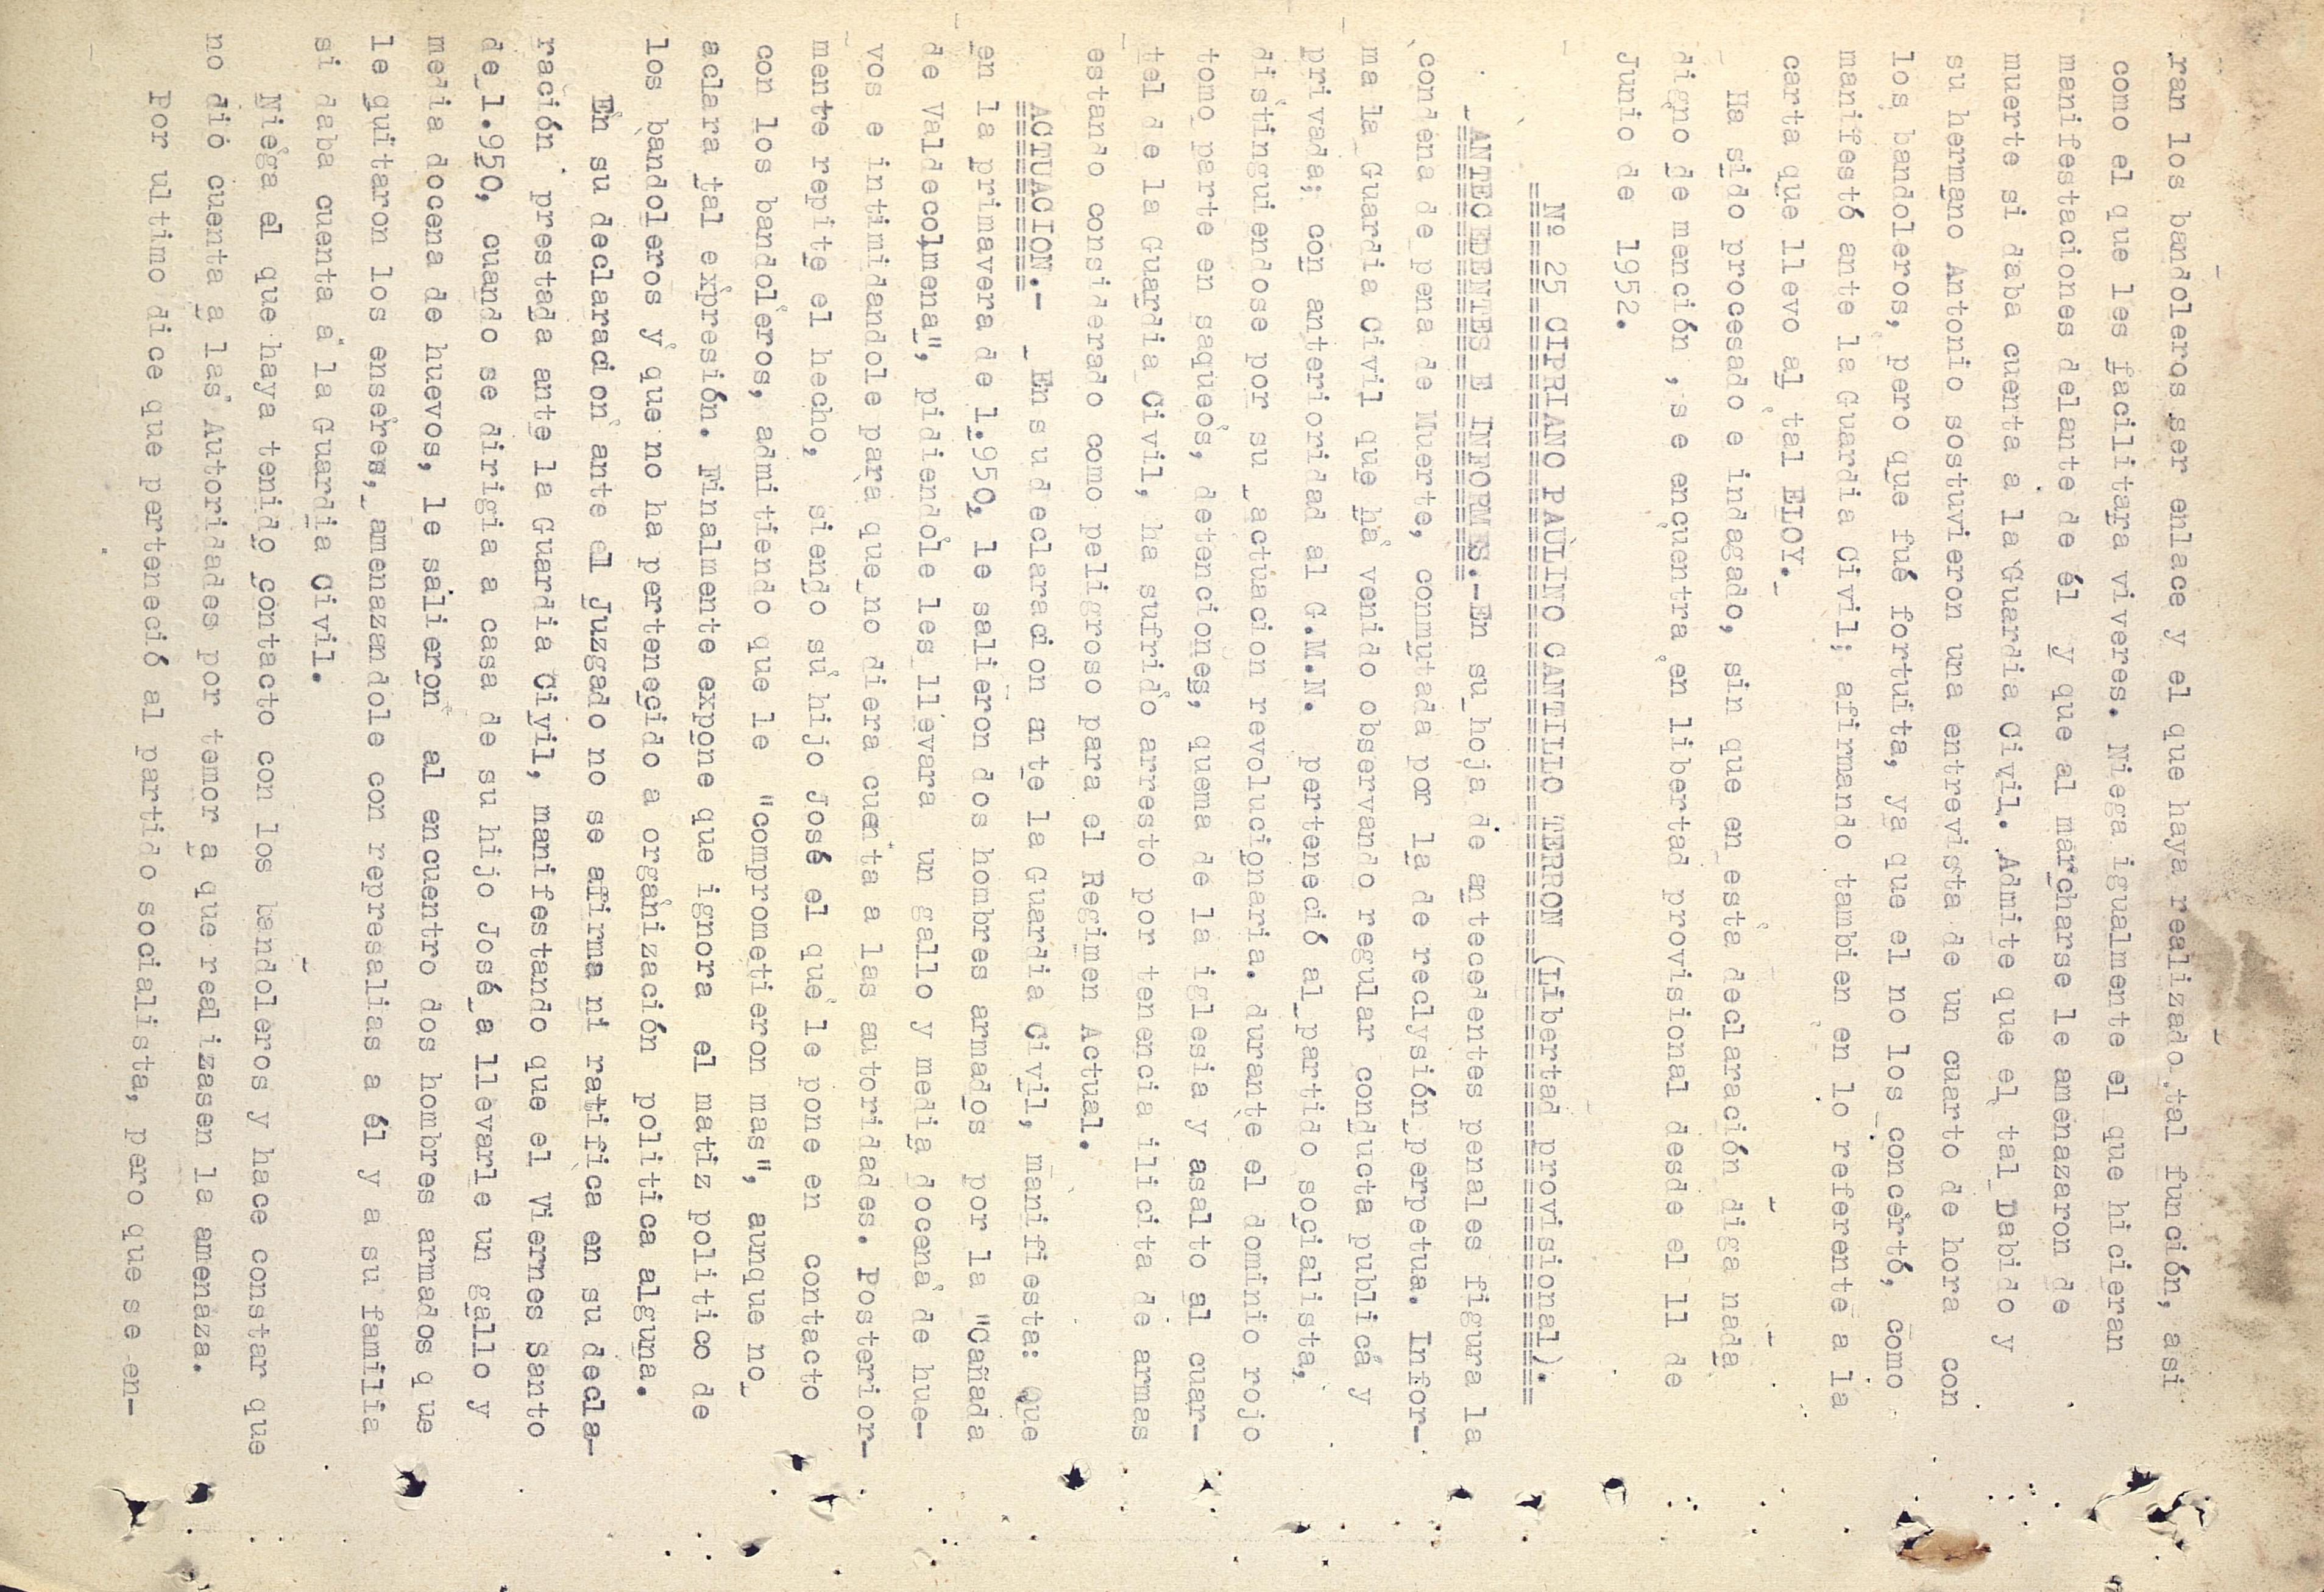 ran los bandoleros ser enlace y el que haya realizado tal función, asi
como el que les facilitara viveres. Niega igualmente el que hicieran
manifestaciones delante de él y que al marcharse le amenazaron de
muerte si daba cuenta a la Guardia Civil. Admite que el tal Dabido y
su hermano Antonio sostuvieron una entrevista de un cuarto de hora con
los bandoleros, pero que fué fortuita, ya que el no los concertó, como
manifestó ante la Guardia Civil; afirmando tambien en lo referente a la
carta que llevo al tal ELOY.
Ha sido procesado e indagado, sin que en esta declaración diga nada
digno de mención , se encuentra en libertad provisional desde el 11 de
Junio de 1952.
Nº 25 CIPRIANO PAULINO CANTILLO TERRON (Libertad provisional).
ANTECEDENTES E INFORMES.-En su hoja de antecedentes penales figura la
condena de pena de Muerte, conmutada por la de reclysión perpetua. Infor-
ma la Guardia Civil que ha venido observando regular conducta publica y
privada; con anterioridad al G.M.N. perteneció al partido socialista,
distinguiendose por su actuacion revolucionaria. durante el dominio rojo
tomo parte en saqueos, detenciones, quema de la iglesia y asalto al cuar-
tel de la Guardia Civil, ha sufrido arresto por tenencia ilicita de armas
estando considerado como peligroso para el Regimen Actual.
ACTUACION.- En su declaracion ante la Guardia Civil, manifiesta: Que
en la primavera de 1.950, le salieron dos hombres armados por la "Cañada
de Valdecolmena", pidiendole les llevara un gallo y media docena de hue-
vos e intimidandole para que no diera cuenta a las autoridades. Posterior-
mente repite el hecho, siendo su hijo José el que le pone en contacto
con los bandoleros, admitiendo que le "comprometieron mas", aunque no
aclara tal expresión. Finalmente expone que ignora el matiz politico de
los bandoleros y que no ha pertenecido a organización politica alguna.
En su declaracion ante el Juzgado no se afirma ni ratifica en su decla-
ración prestada ante la Guardia Civil, manifestando que el Viernes Santo
de 1.950, cuando se dirigia a casa de su hijo José a llevarle un gallo y
media docena de huevos, le salieron al encuentro dos hombres armados q ue
le quitaron los enseres, amenazandole con represalias a él y a su familia
si daba cuenta a la Guardia Civil.
Niega el que haya tenido contacto con los bandoleros y hace constar que
no dió cuenta a las Autoridades por temor a que realizasen la amenaza.
Por ultimo dice que perteneció al partido socialista, pero que se en-